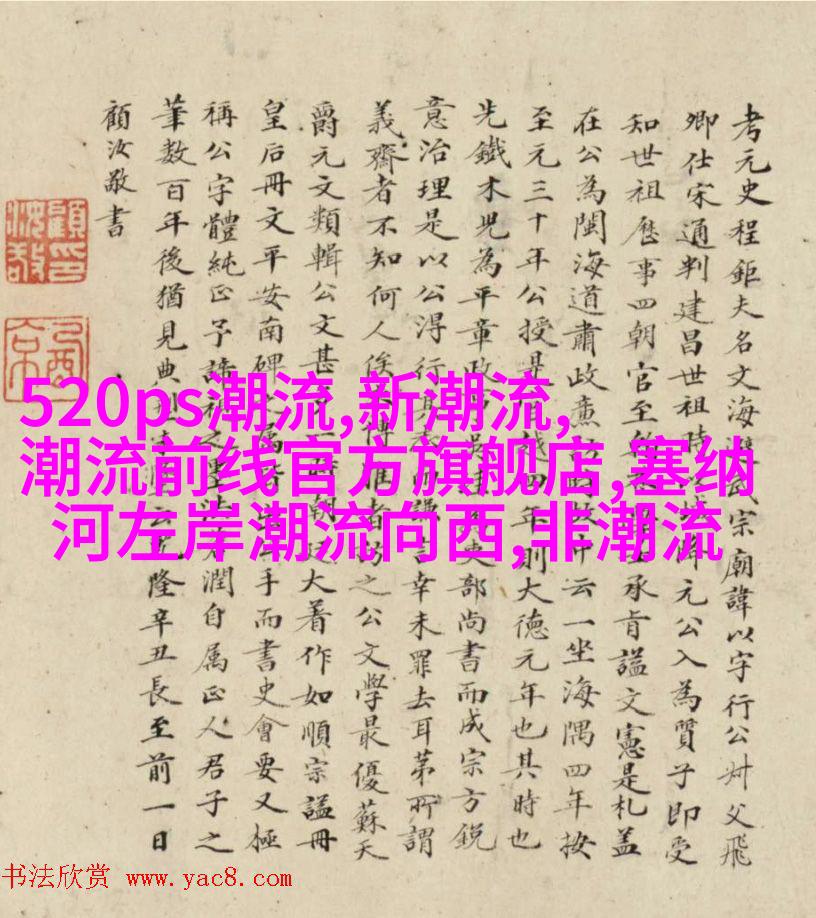 考元史程鉅夫名文海武宗廟諱以字行公叔父飛
卿仕宋通判建昌世祖時降元公入為質子即受
知世祖歷事四朝官至承旨諡文憲是札蓋
在公為閩海道肅政廉訪中云一坐海隅四年按
至元三十年公授是越四年則大德元年也其時也
先鐵木兒為平章政吏部尚書而成宗方銳
意治理是以公得行其言幸未罪去耳苐所謂
義齋者不知何人俟博雅者之公文學最優蘇天
爵元文類輯公文甚朝廷大著作如順宗諡冊
皇后冊文平安南碑之屬皆手而書史會要又極
稱公字體純正予諦視之潤自属正人君子之
筆数百年後猶見典型隆辛丑長至前一日
顧汝敬書
顧印汝敬
520ps潮流,新潮流,
潮流前线官方旗舰店,塞纳
河左岸潮流向西,非潮流
书法欣赏 www.yac8.com